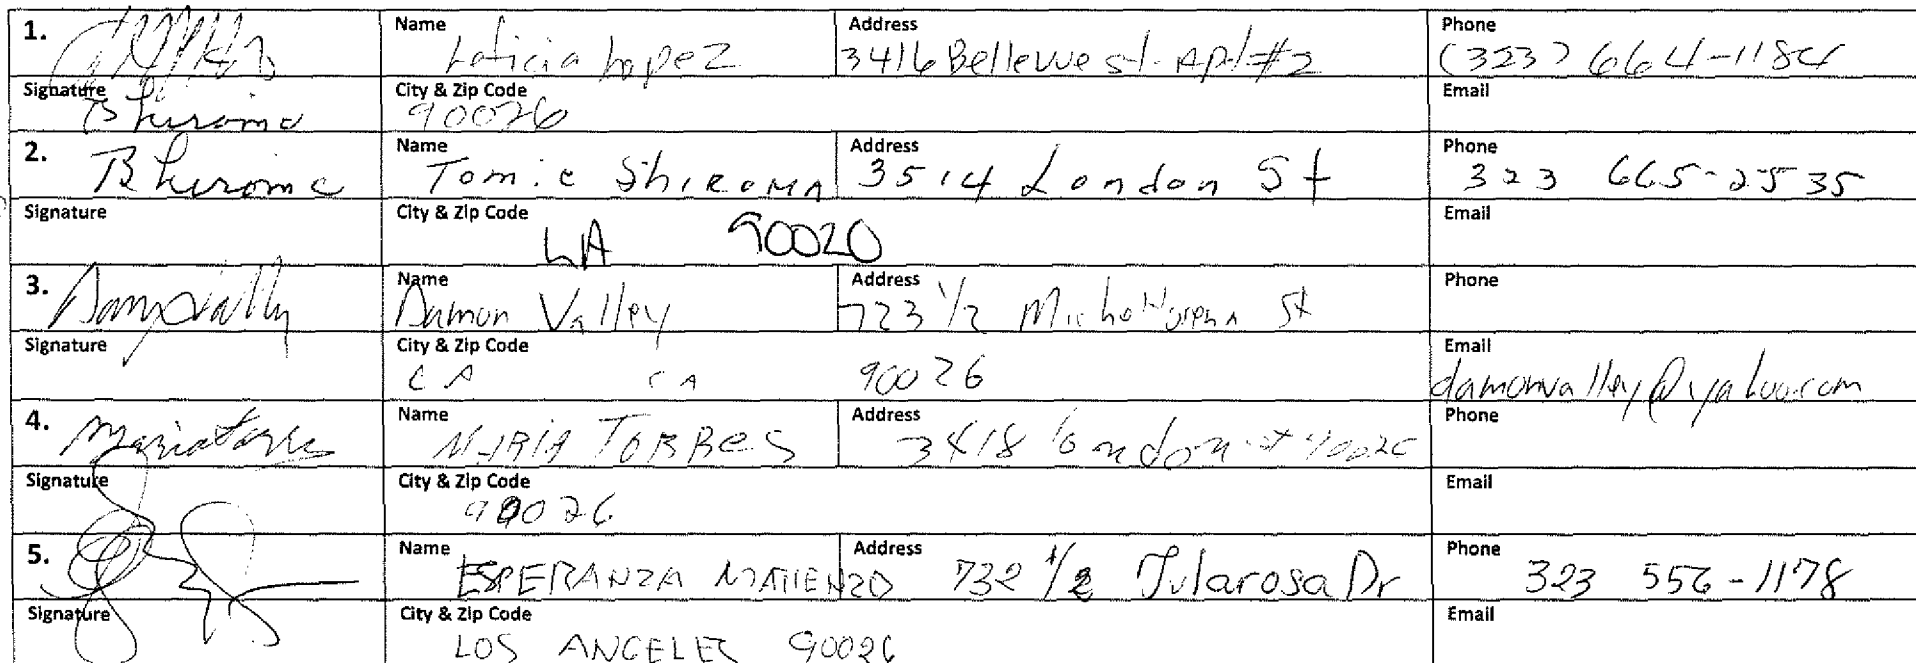 1. Name Leticia Lopez Address 3416 Bellevue st. Apt #2 Phone (323) 664-1184
Signature City & Zip Code 90026 Email
2. Name Tomie SHIROMA Address 3514 London St Phone 323 665-2535
Signature City & Zip Code LA 90020 Email
3. Name Damon Valley Address 723 1/2 St Phone
Signature City & Zip Code CA CA 90026 Email damonvalley@yahoo.com
4. Name MARIA TORRES Address 3418 London st 90026 Phone
Signature City & Zip Code 90026 Email
5. Name ESPERANZA MATIENZO Address 732 1/2 Tularosa Dr Phone 323 556-1178
Signature City & Zip Code LOS ANGELES 90026 Email